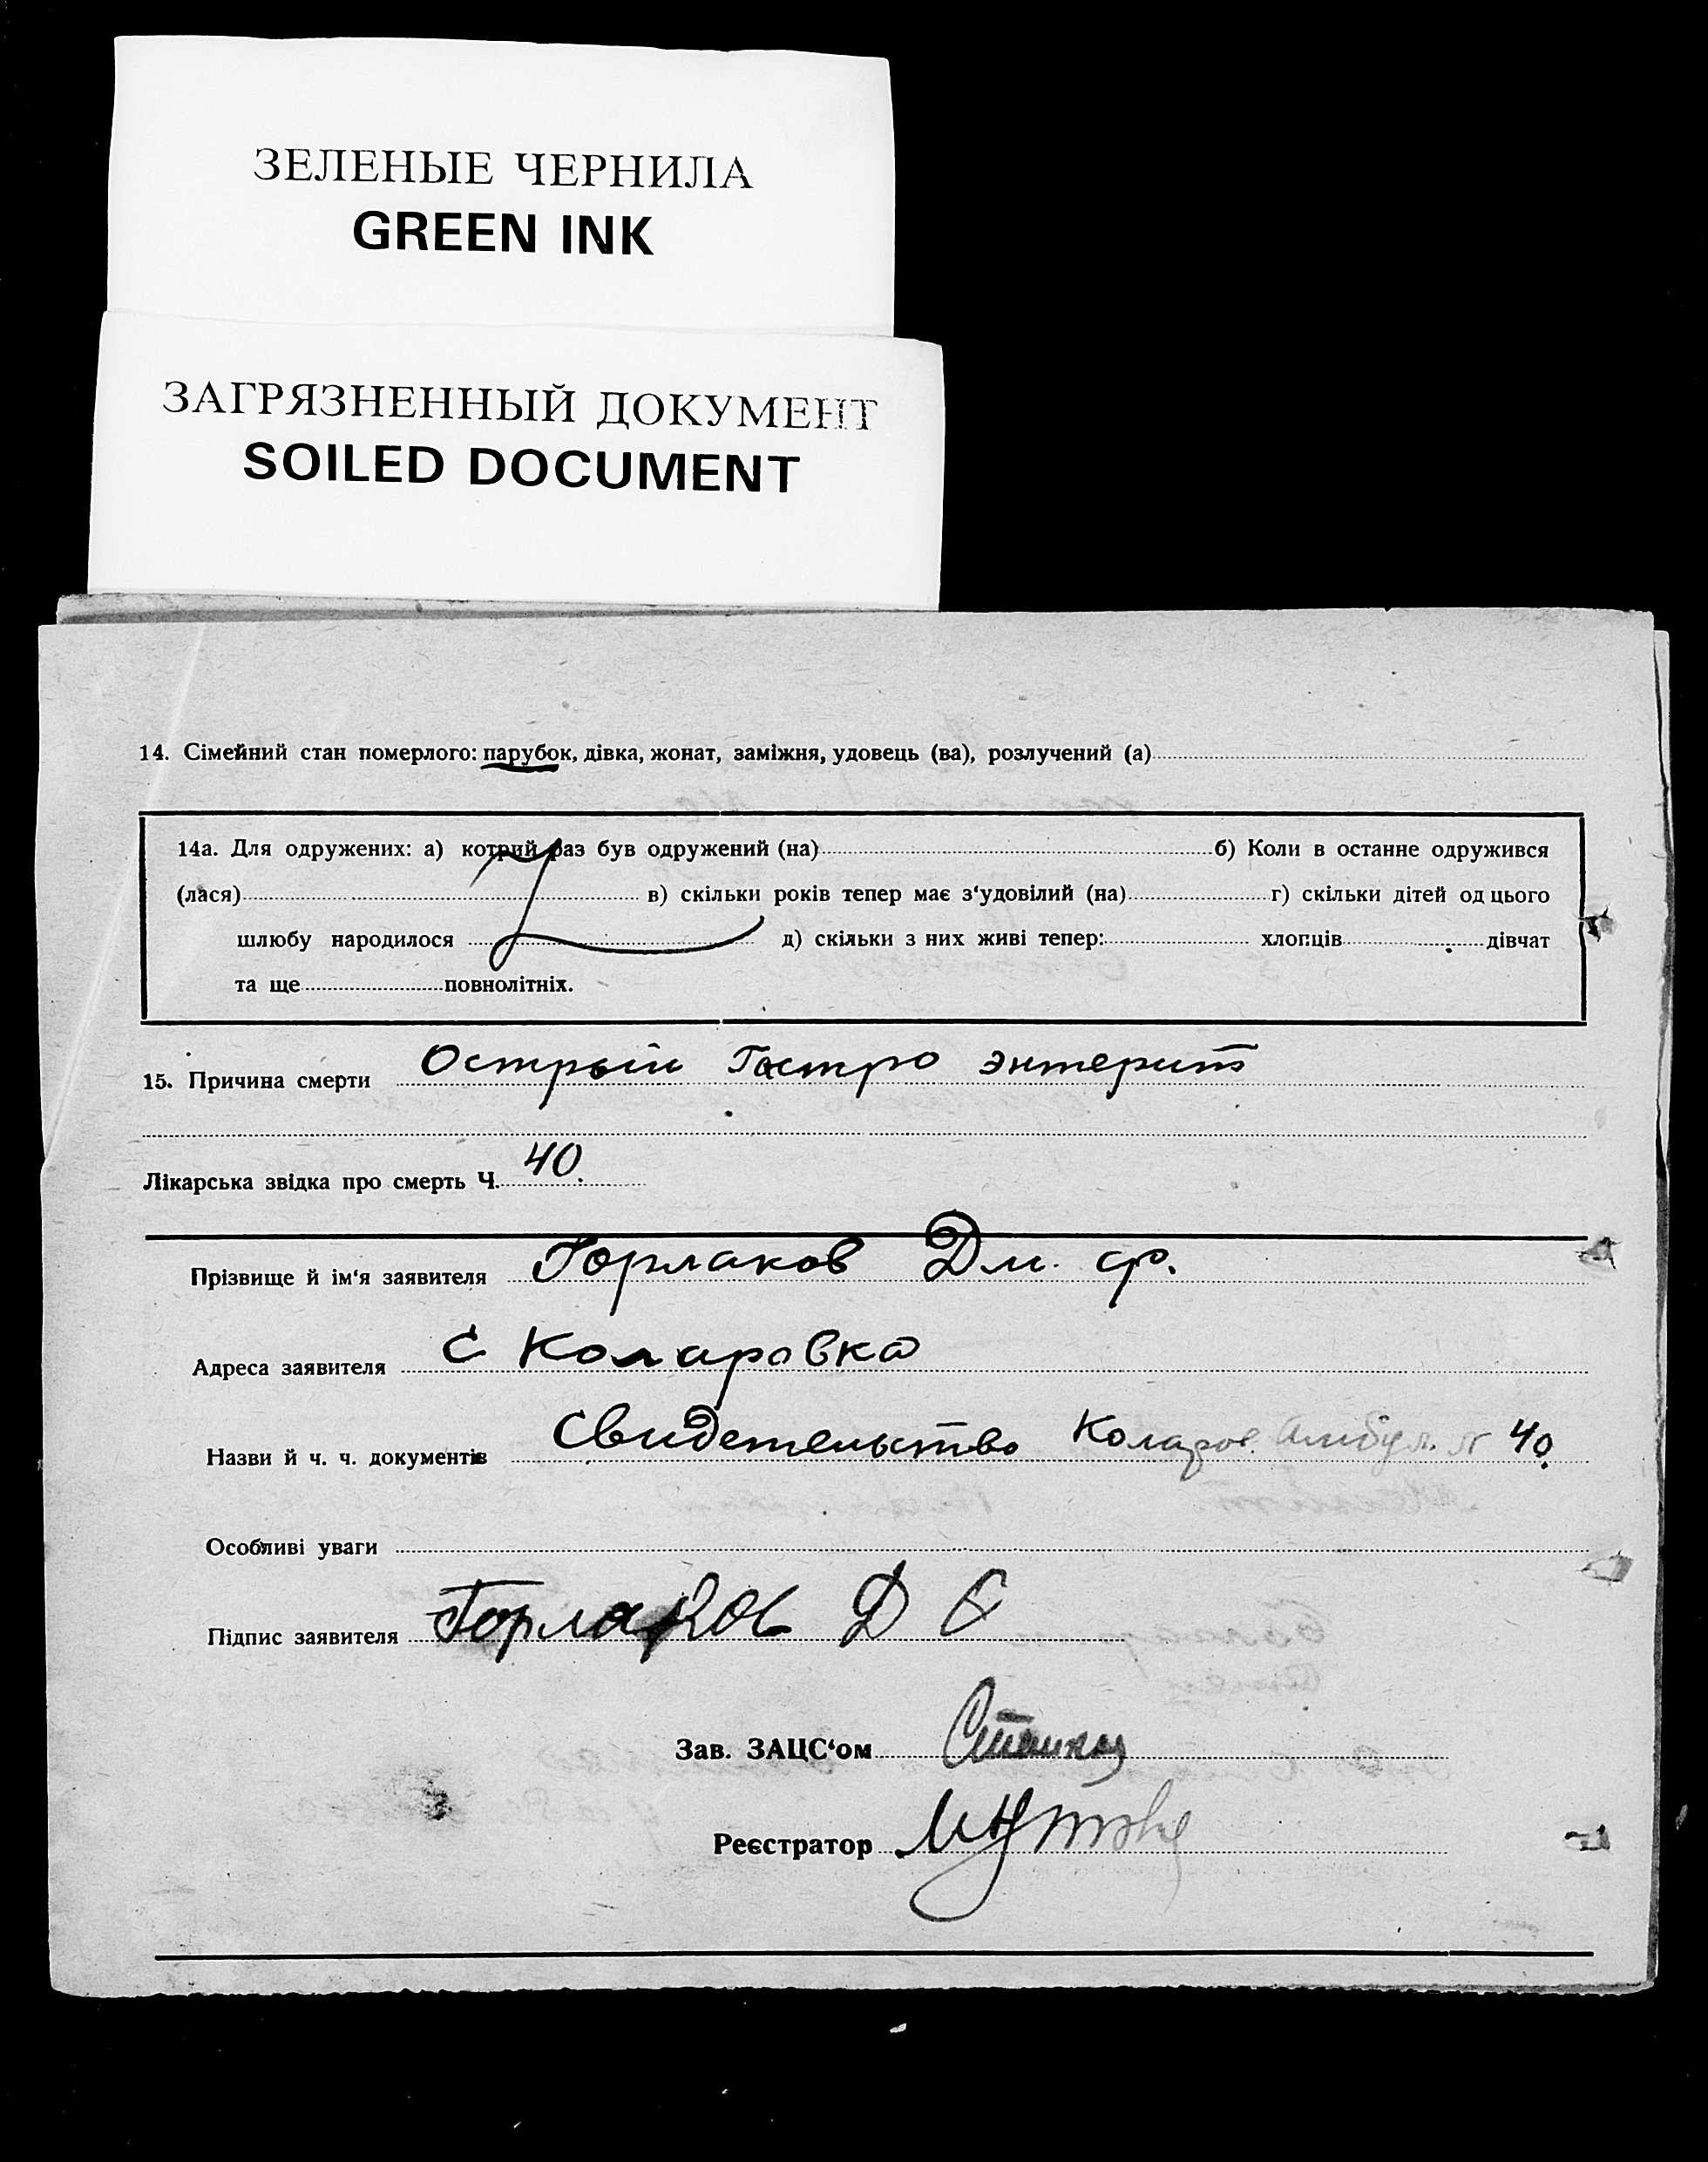 ЗЕЛЕНЫЕ ЧЕРНИЛА
GREEN INK
ЗАГРЯЗНЕННЫЙ ДОКУМЕНТ
SOILED DOCUMENT
14. Сімейний стан померлого: парубок, дівка, жонат, заміжня, удовець (ва), розлучений (а)
14а. Для одружених: а) котрий раз був одружений (на) б) Коли в останне одружився
(лася) в) скільки років тепер має з‘удовілий (на) г) скільки дітей од цього
шлюбу народилося д) скільки з них живі тепер: хлопців дівчат
та ще повнолітніх.
15. Причина смерти Острый Гастро энтерит
Лікарська звідка про смерть Ч. 40.
Прізвище й ім‘я заявителя Горлаков Дм. ф.
Адреса заявителя С Коларовка
Назви й ч. ч. документів Свидетельство Коларов. Амбул. N 40.
Особливі уваги
Підпис заявителя Горлаков Д Є
Зав. ЗАЦС‘ом
Реєстратор